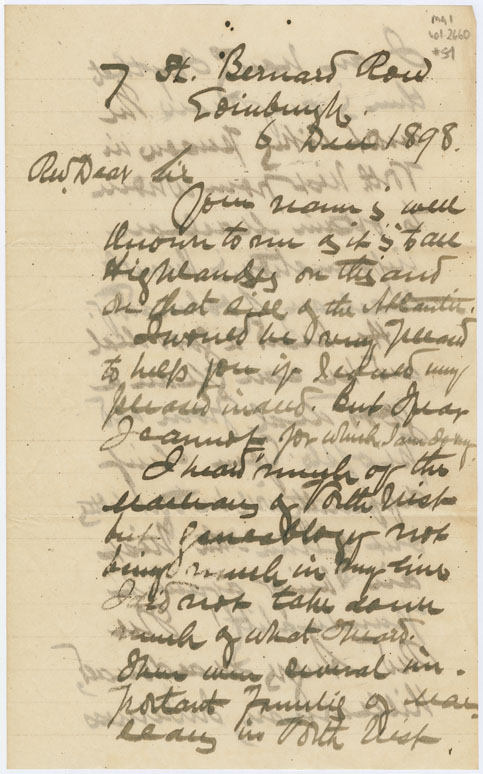 MG 1
vol. 2660
#51
7 St. Bernard Row
Edinburgh.
6 Dec 1898.
Revd. Dear Sir
Your name is well
known to me as it is to all
Highlanders on this and
on that side of the Atlantic.
I would be very pleased
to help you if I could very
pleased indeed. But I fear
I cannot, for which I am sorry.
I heard much of the
Macleans of North Uist
but genealogy not
being much in my line
I did not take down
much of what I heard.
There were several im-
portant families of Mac-
leans in North Uist